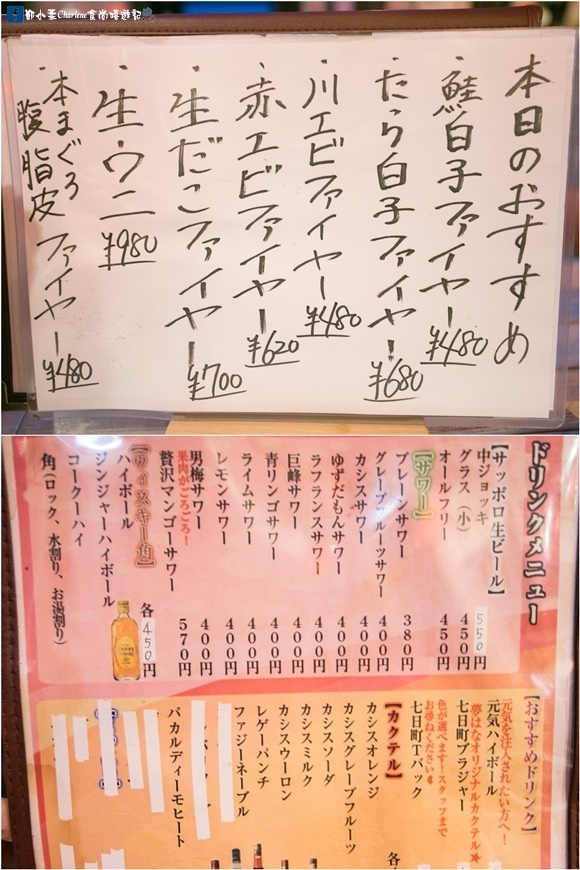 鄭小柔Charlene食尚嬉遊記
本日のおすすめ
・鮭白子ファイヤー ¥480
・たら白子ファイヤー ¥680
・川エビファイヤー ¥480
・赤エビファイヤー ¥620
・生だこファイヤー ¥700
・生ウニ ¥980
・本まぐろ腹脂皮ファイヤー ¥480
ドリンクメニュー
【サッポロ生ビール】
中ジョッキ 550円
グラス(小) 450円
オールフリー 450円
【サワー】
プレーンサワー 380円
グレープフルーツサワー 400円
カシスサワー 400円
ゆずだもんサワー 400円
ラフランスサワー 400円
巨峰サワー 400円
青リンゴサワー 400円
ライムサワー 400円
レモンサワー 400円
男梅サワー 400円
果肉がごろごろ!
贅沢マンゴーサワー 570円
【ウィスキー角】
ハイボール
ジンジャーハイボール
コークハイ
角(ロック、水割り、お湯割り)
各450円
【おすすめドリンク】
元気を注入されたい方へ!
元気ハイボール
夢はなオリジナルカクテル★
七日町ブラジャー
色が選べます!スタッフまで
お尋ねください
七日町Tバック
【カクテル】
カシスオレンジ
カシスグレープフルーツ
カシスソーダ
カシスミルク
カシスウーロン
レゲーパンチ
ファジーネーブル
バカルディーモヒート
各